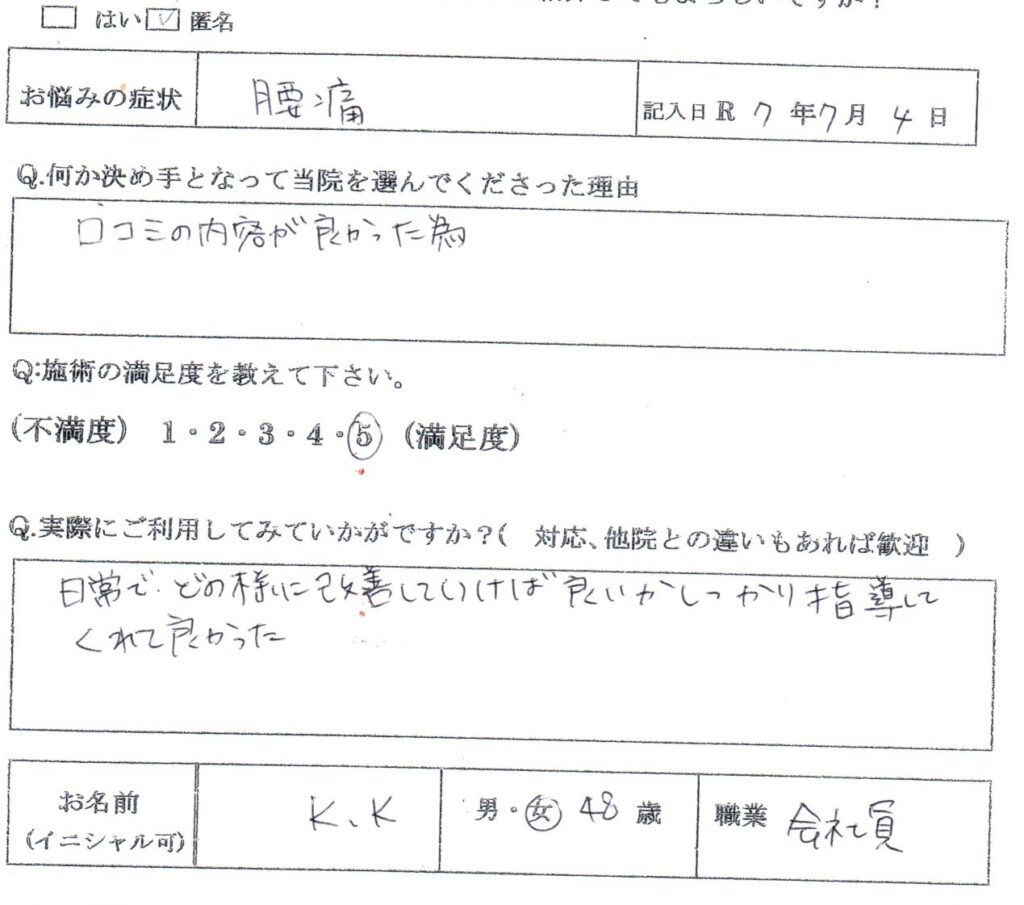 □ はい ☑ 匿名
お悩みの症状 腰痛 記入日 R 7 年 7 月 4 日
Q.何が決め手となって当院を選んでくださった理由
口コミの内容が良かった為
Q:施術の満足度を教えて下さい。
(不満度) 1・2・3・4・5 (満足度)
Q.実際にご利用してみていかがですか?( 対応、他院との違いもあれば歓迎 )
日常で どの様に改善していけば 良いかしっかり指導して
くれて良かった
お名前
(イニシャル可) K、K 男・女 48 歳 職業 会社員